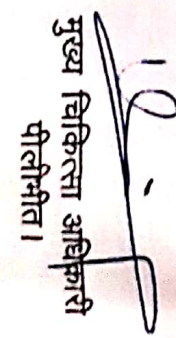 मुख्य चिकित्सा अधिकारी
पीलीभीत।